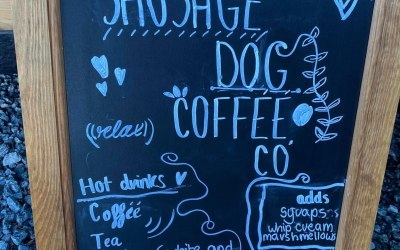 SAUSAGE
DOG
COFFEE
CO.
((relax))
Hot drinks
Coffeé
Tea
adds
syraps
whip cream
marshmellows
white and